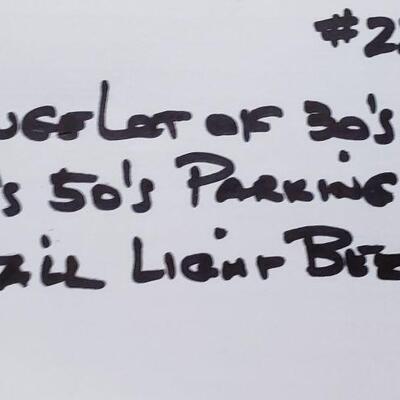 #22
UGE LOT OF 30's
's 50's PARKING
AIL LIGHT BEZ